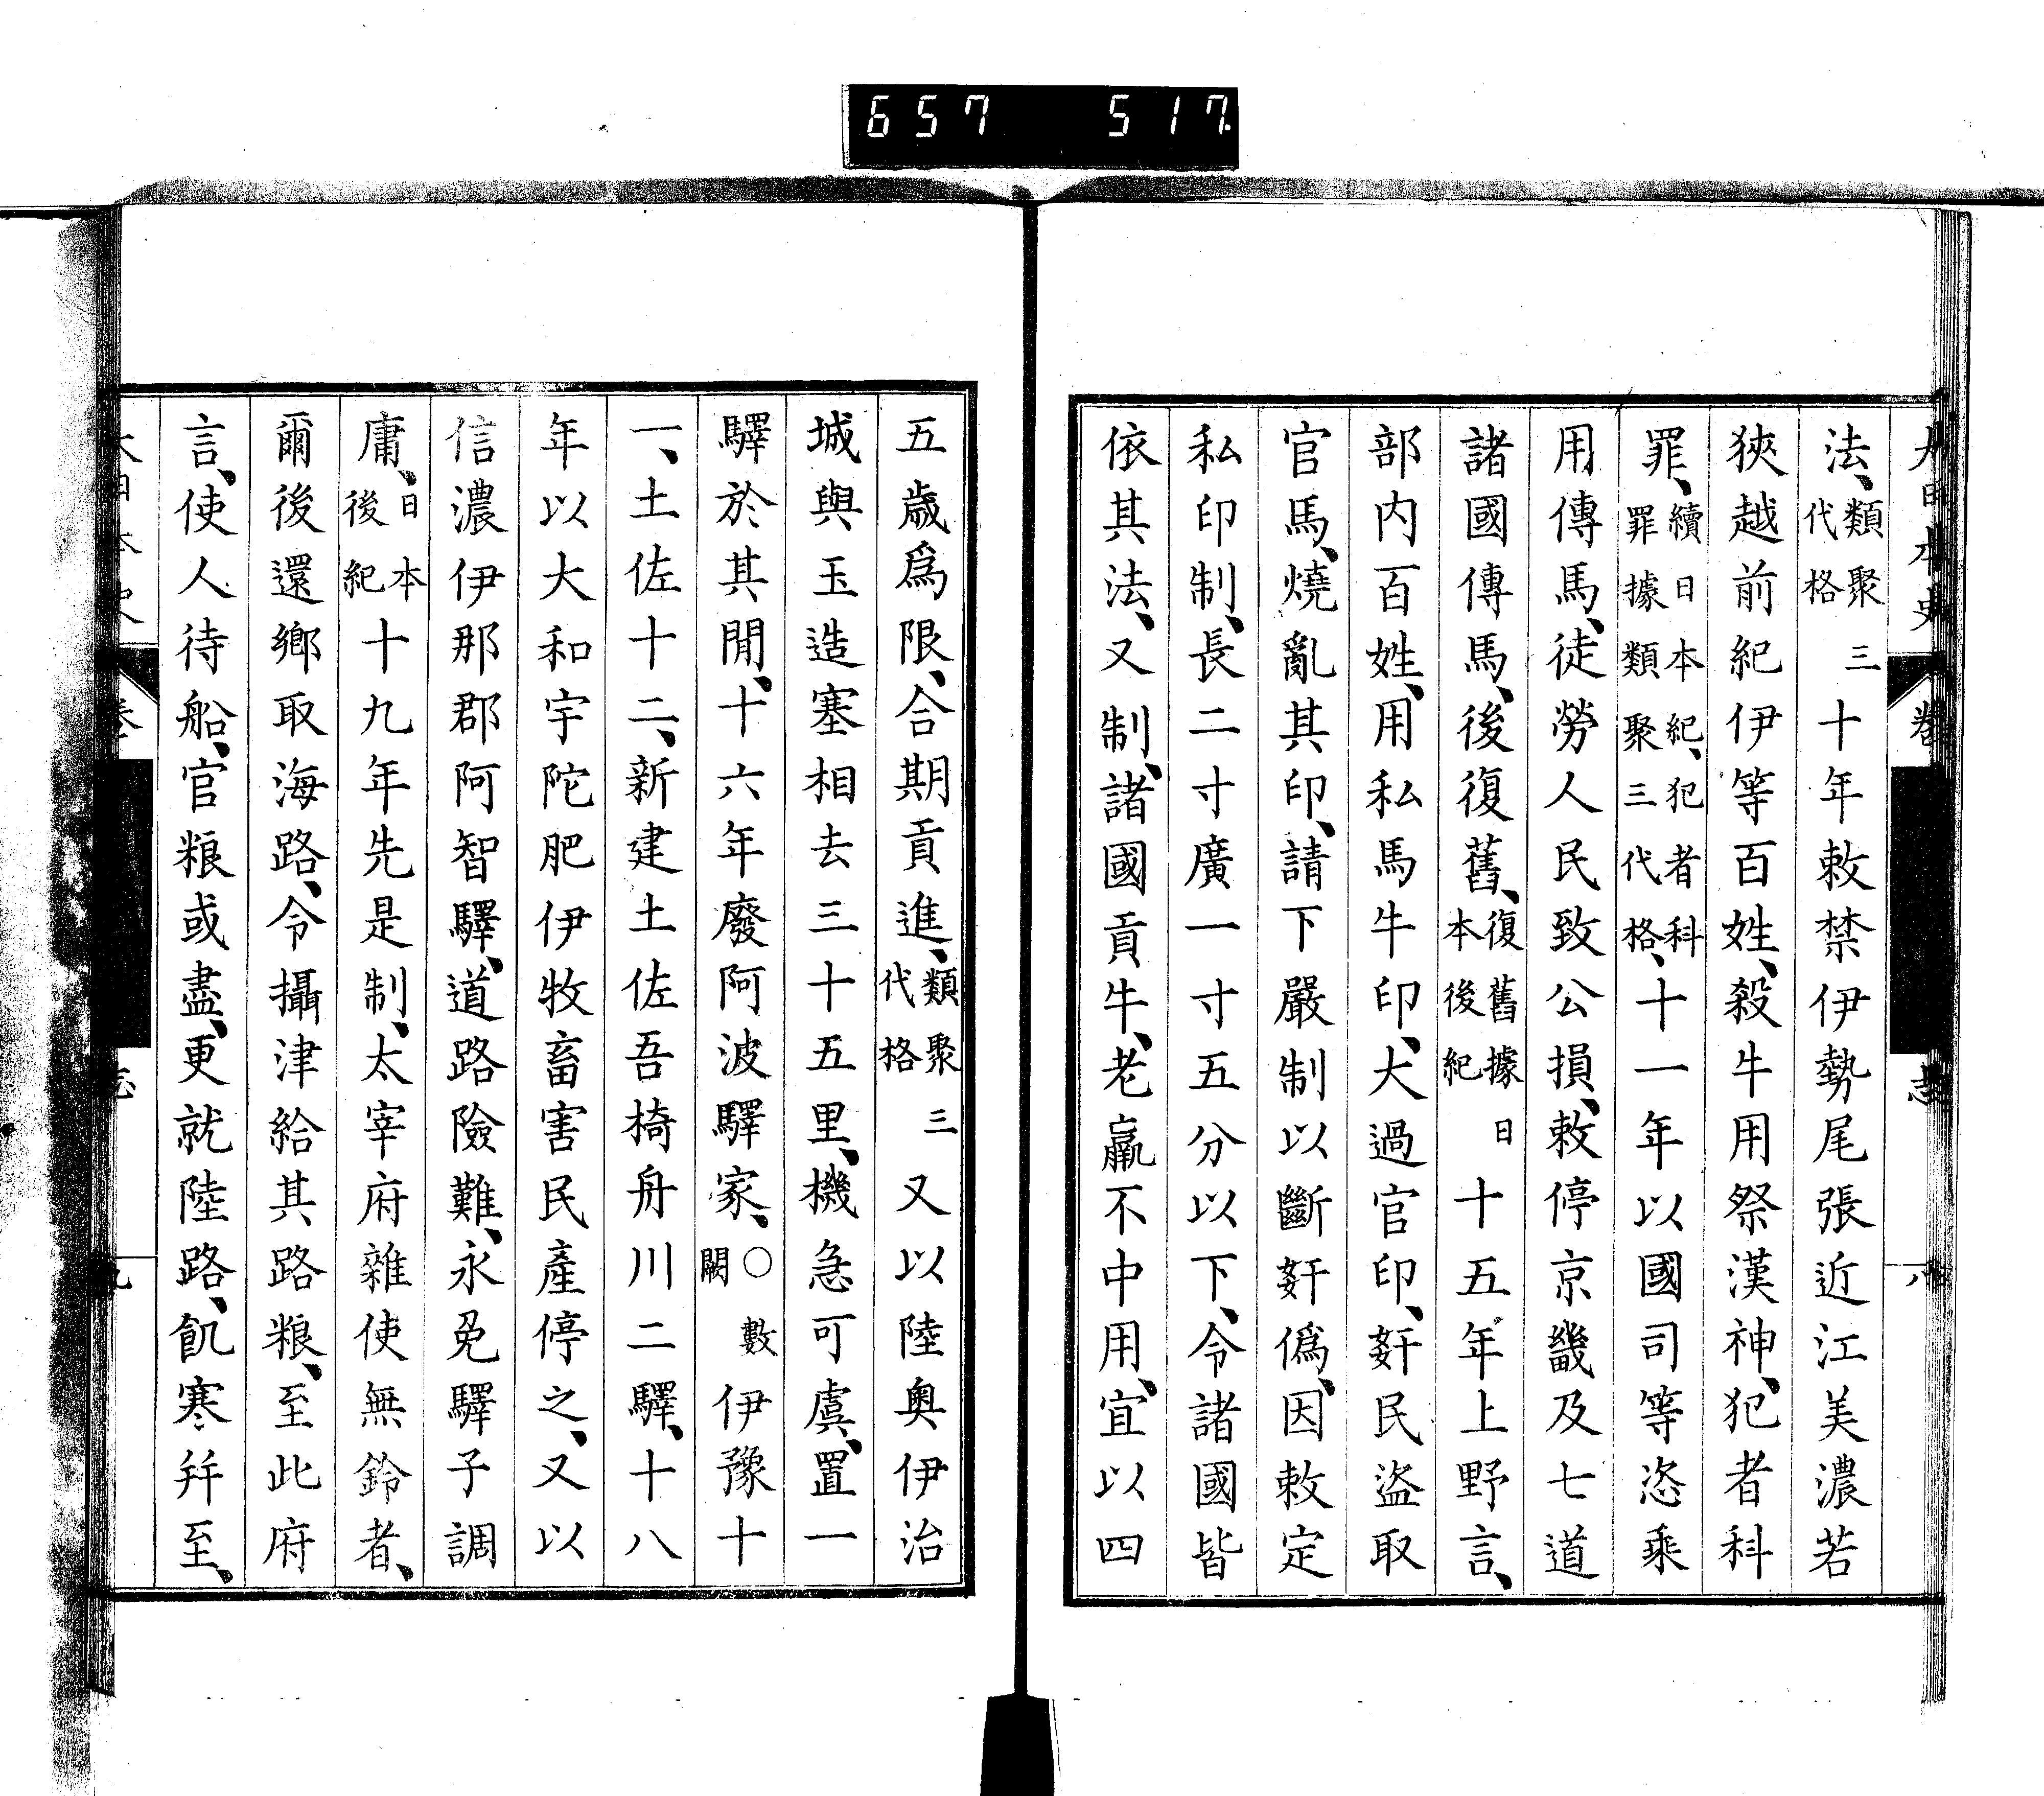 657 517
大日本史 卷 志 八
法、類聚三代格十年敕禁伊勢尾張近江美濃若
狹越前紀伊等百姓、殺牛用祭漢神、犯者科
罪、續日本紀、犯者科罪據類聚三代格、十一年以國司等恣乘
用傳馬、徒勞人民致公損、敕停京畿及七道
諸國傳馬、後復舊、復舊據日本後紀十五年上野言、
部內百姓、用私馬牛印、大過官印、姧民盜取
官馬、燒亂其印、請下嚴制以斷姧僞、因敕定
私印制、長二寸廣一寸五分以下、令諸國皆
依其法、又制、諸國貢牛、老羸不中用、宜以四
五歲爲限、合期貢進、類聚三代格又以陸奧伊治
城與玉造塞相去三十五里、機急可虞、置一
驛於其閒、十六年廢阿波驛家、○數闕伊豫十
一、土佐十二、新建土佐吾椅舟川二驛、十八
年以大和宇陀肥伊牧畜害民產停之、又以
信濃伊那郡阿智驛、道路險難、永免驛子調
庸、日本後紀十九年先是制、太宰府雜使無鈴者、
爾後還鄉取海路、令攝津給其路粮、至此府
言、使人待船、官粮或盡、更就陸路、飢寒幷至、
大日本史 卷 志 九